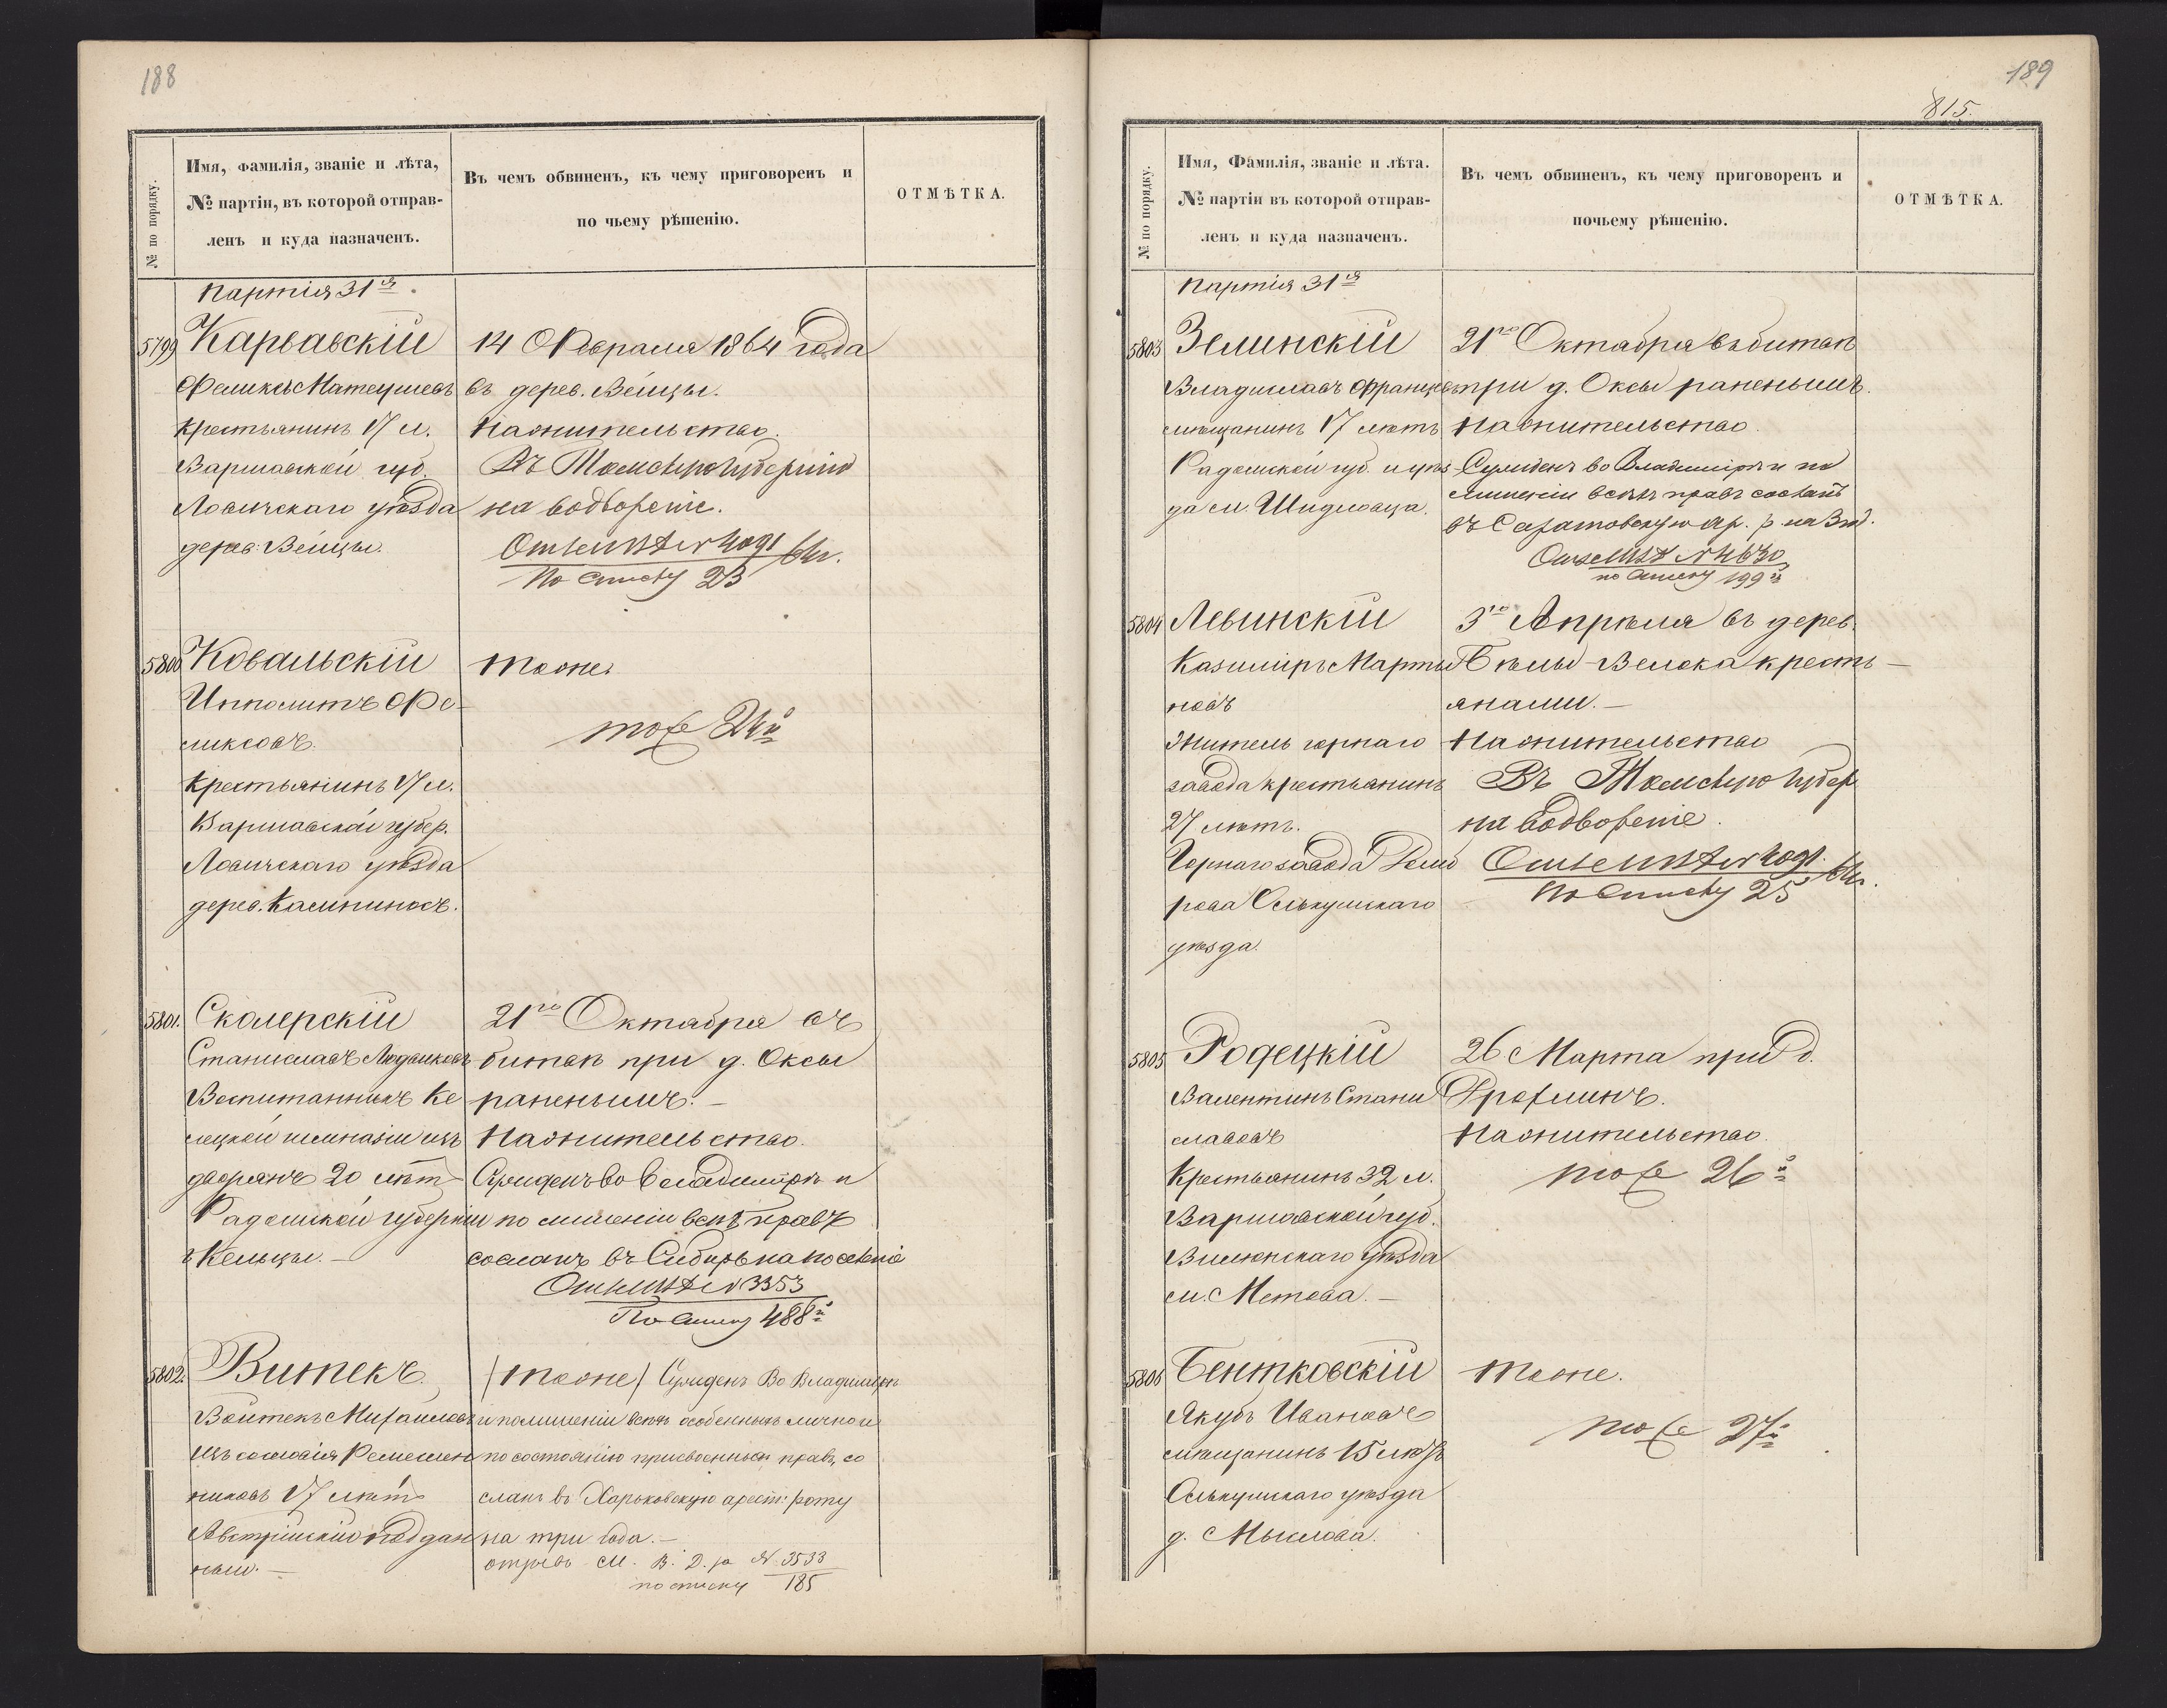 188
№ по порядку.
Имя, фамилія, званіе и лѣта,
№ партіи, въ которой отправ-
ленъ и куда назначенъ.
Въ чемъ обвиненъ, къ чему приговоренъ и
по чьему рѣшенію.
ОТМѢТКА.
Партія 31я.
5799 Карвавскій
Феликсъ Матеушевъ
Крестьянинъ 17 л.
Варшавской губ.
Ловичскаго уѣзда
дерев. Вейцы.
14 Февраля 1864 года
въ дерев. Вейцы.
На жительство.
Въ Томскую губернію
на водвореніе.
По списку 23
5800 Ковальскій
Ипполитъ Фе-
ликсовъ.
Крестьянинъ 17 л.
Варшавской губер.
Ловичскаго уѣзда
дерев.
Тоже.
тоже 24й
5801. Сколерскій
Станиславъ Людвиковъ
Воспитанникъ Ке
лецкой гимназіи изъ
дворянъ 20 лѣт
Радомской губерніи
г. Кельцы. —
21го Октября въ
битвѣ при д. Оксы
раненымъ. —
На жительство.
Сужденъ во Владимірѣ и
по лишеніи всѣхъ правъ
сосланъ въ Сибирь на поселеніе
№ 3353
По списку 488й
5802. Витекъ.
Войтехъ Михайловъ
Изъ сословія Ремеслен
никовъ 17 лѣтъ
Австрійскій поддан
ный. —
(Тоже) Сужденъ во Владимірѣ
и по лишеніи всѣхъ особенныхъ лично и
по состоянію присвоенныхъ правъ, со
сланъ въ Харьковскую арест. роту
на три года. —
М. В. Д. за № 3533
по списку 185
189
815.
№ по порядку.
Имя, Фамилія, званіе и лѣта.
№ партіи въ которой отправ-
ленъ и куда назначенъ.
Въ чемъ обвиненъ, къ чему приговоренъ и
почьему рѣшенію.
ОТМѢТКА.
Партія 31я
5803 Зелинскій
Владиславъ Францевъ
мѣщанинъ 17 лѣтъ
Радомской губ. и уѣз
да м. Шидловца.
21го Октября въ битвѣ
при д. Оксы раненымъ.
На жительство.
Сужденъ во Владимірѣ и по
лишеніи всѣхъ правъ состоянія
въ Саратовскую ар. р. на 3 год.
№ 4630
по списку 199й
5804 Левинскій
Казиміръ Марты
новъ
Житель горнаго
завода крестьянинъ
27 лѣтъ.
Горнаго завода
Олькушскаго
уѣзда.
3го Апрѣля въ дерев.
Бялы-Велока кресть-
янами. —
На жительство
Въ Томскую губер
на водвореніе.
По списку 25
5805 Родецкій
Валентинъ Стани
славовъ
Крестьянинъ 32 л.
Варшавской губ.
Вилюнскаго уѣзда
м. Метова. —
26 Марта при д.
На жительство.
тоже 26й
5806 Бентковскій
Якубъ Ивановъ
мѣщанинъ 15 лѣтъ
Олькушскаго уѣзда
д. Мыслова.
Тоже.
тоже 27й